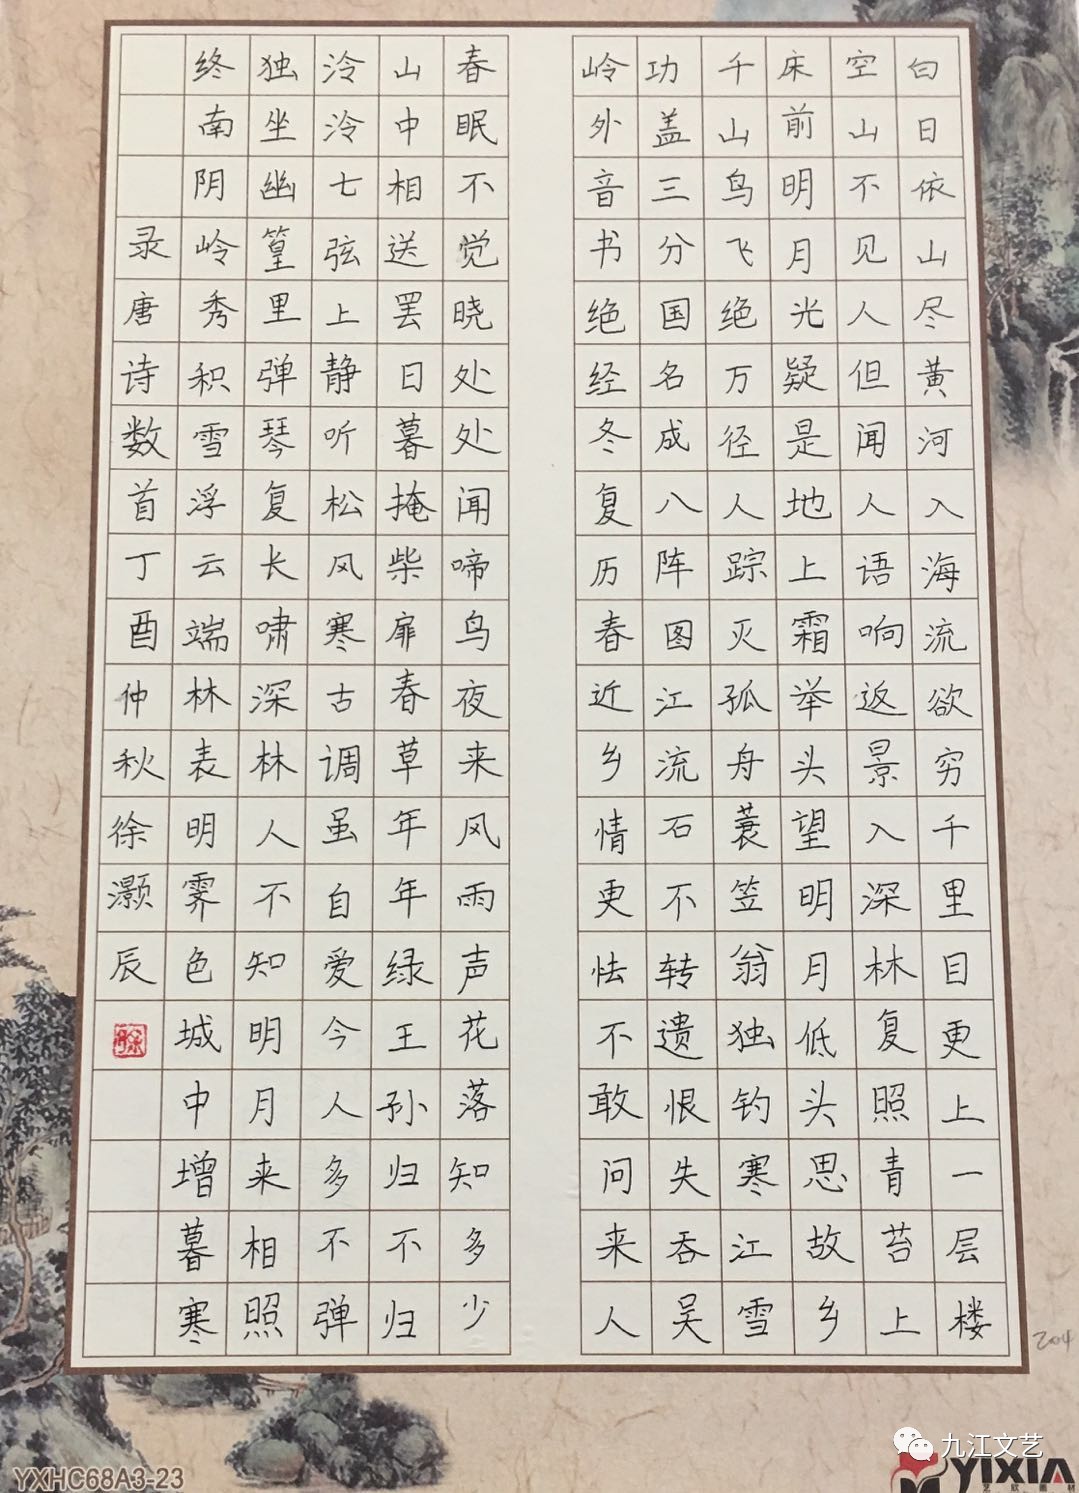 白日依山尽黄河入海流欲穷千里目更上一层楼
空山不见人但闻人语响返景入深林复照青苔上
床前明月光疑是地上霜举头望明月低头思故乡
千山鸟飞绝万径人踪灭孤舟蓑笠翁独钓寒江雪
功盖三分国名成八阵图江流石不转遗恨失吞吴
岭外音书绝经冬复历春近乡情更怯不敢问来人
春眠不觉晓处处闻啼鸟夜来风雨声花落知多少
山中相送罢日暮掩柴扉春草年年绿王孙归不归
泠泠七弦上静听松风寒古调虽自爱今人多不弹
独坐幽篁里弹琴复长啸深林人不知明月来相照
终南阴岭秀积雪浮云端林表明霁色城中增暮寒
录唐诗数首丁酉仲秋徐灏辰
204
九江文艺
YXHC68A3-23
YIXIA
艺欣画材